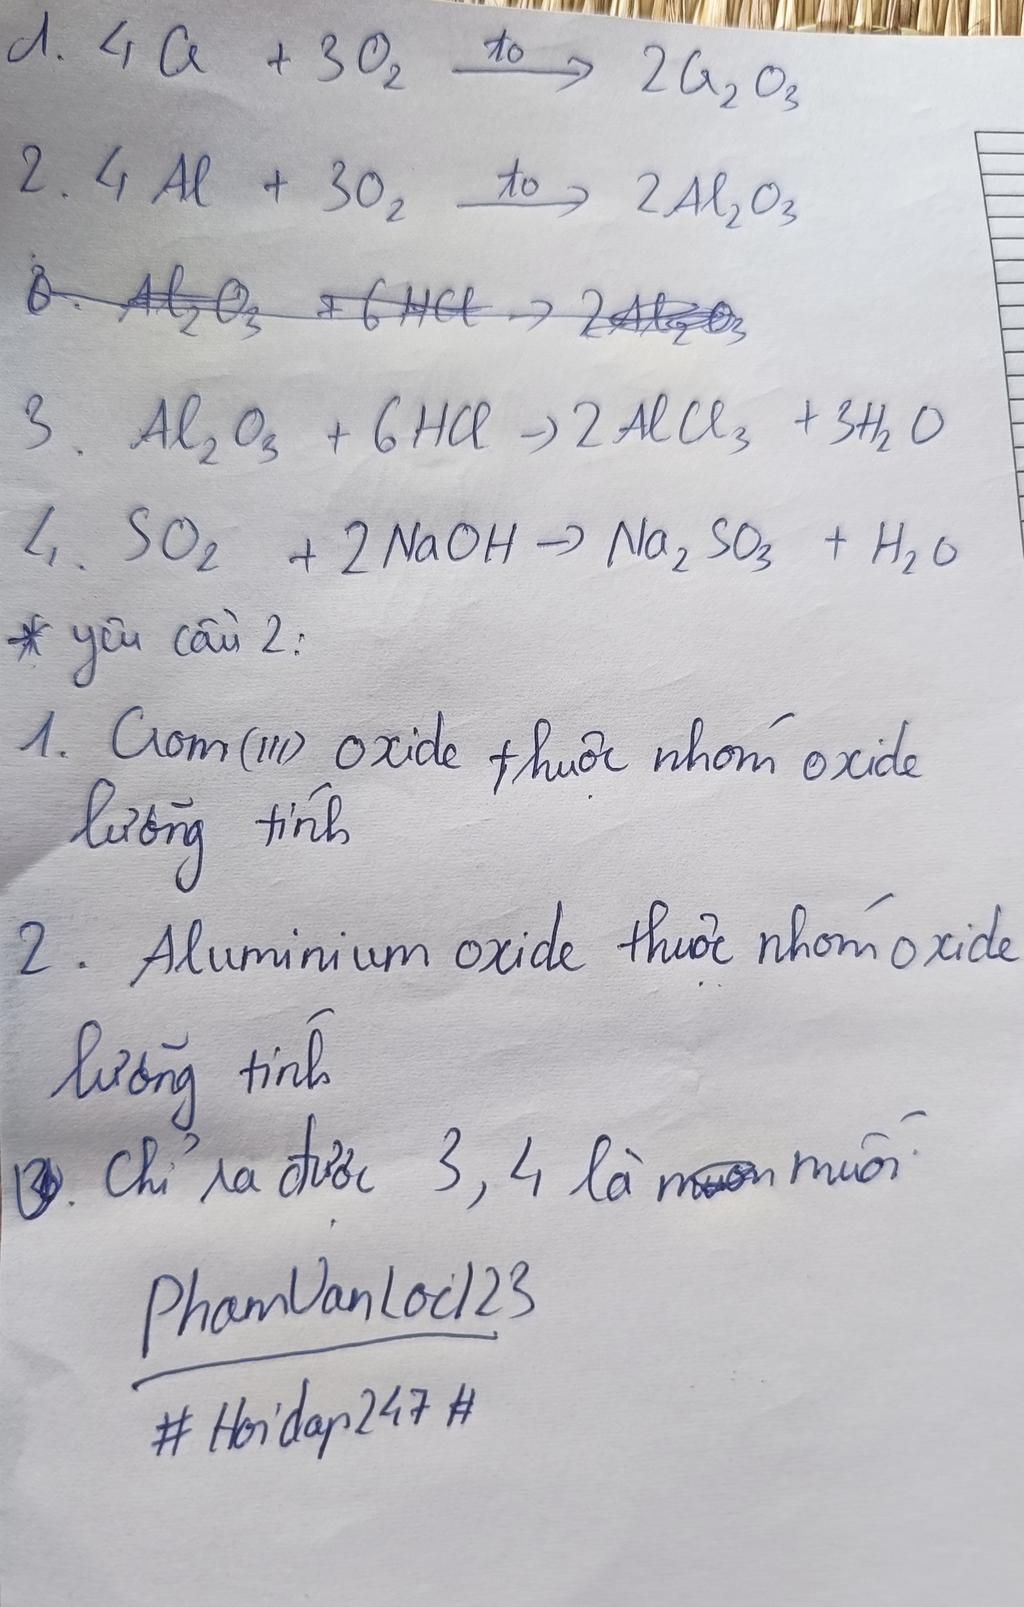 1. 4Cr + 3O₂ —to→ 2Cr₂O₃
2. 4Al + 3O₂ —to→ 2Al₂O₃
3. Al₂O₃ + 6HCl → 2Al₂O₃
3. Al₂O₃ + 6HCl → 2AlCl₃ + 3H₂O
4. SO₂ + 2NaOH → Na₂SO₃ + H₂O
* yêu cầu 2:
1. Crom(III) oxide thuộc nhóm oxide
lưỡng tính
2. Aluminium oxide thuộc nhóm oxide
lưỡng tính
3. Chỉ ra được 3, 4 là muối
PhamVanLoc123
#Hoidap247#